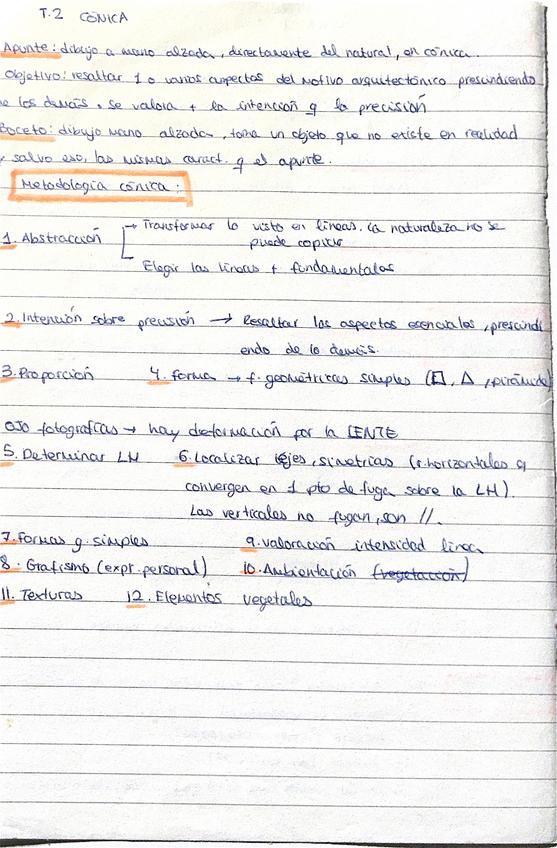 T.2 CÓNICA
Apunte: dibujo a mano alzada, directamente del natural, en cónica.
Objetivo: resaltar 1 o varios aspectos del motivo arquitectónico prescindiendo
e los demás. Se valora + la intención q la precisión
Boceto: dibujo mano alzada, toma un objeto que no existe en realidad
y salvo eso, las mismas caract. q el apunte.
Metodología cónica:
1. Abstracción → Transformar lo visto en líneas. La naturaleza no se
puede copiar
Elegir las líneas + fundamentales
2. Intención sobre precisión → Resaltar los aspectos esenciales, prescindi
endo de lo demás.
3. Proporción 4. Forma → f. geométricas simples (□, △, pirámide)
OJO fotografías → hay deformación por la LENTE
5. Determinar LH 6. Localizar ejes, simetrías (r. horizontales q
convergen en 1 pto de fuga sobre la LH).
Las verticales no fugan, son //.
7. Formas g. simples 9. Valoración intensidad línea
8. Grafismo (expr. personal) 10. Ambientación (vegetación)
11. Texturas 12. Elementos vegetales